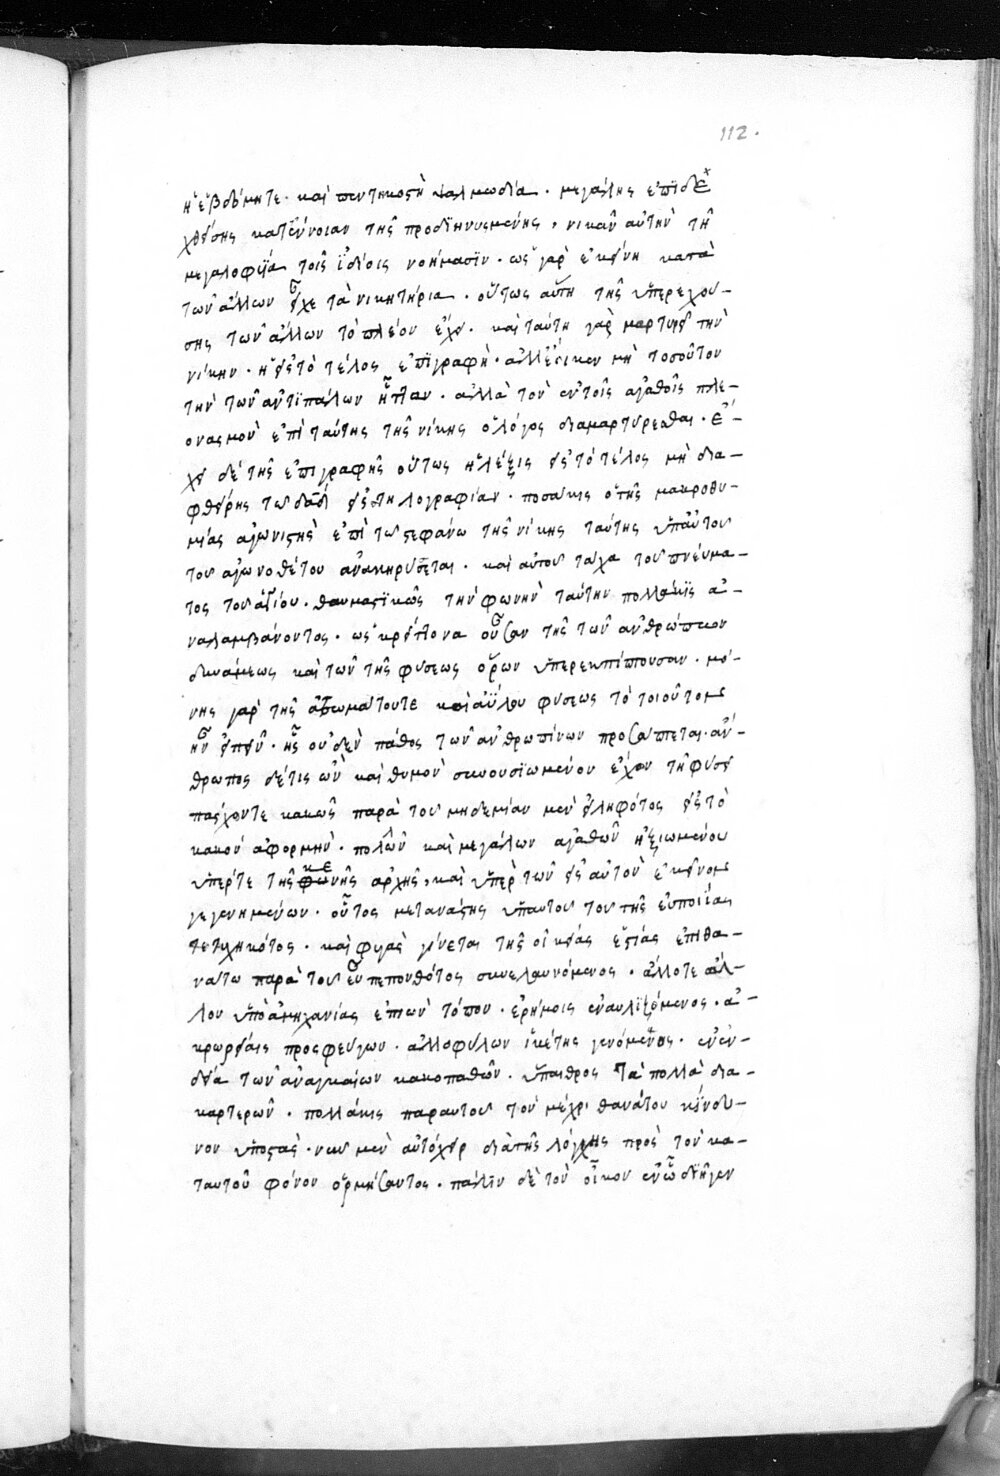 112.
ἡ ἑβδόμητε· καὶ πεντηκοστὴ ψαλμωδία· μεγάλης ἐπιδε
χθείσης κατ' ἔννοιαν τῆς προδιηνυσμένης, νικᾶν αὐτὴν τῆ
μεγαλοφυΐα τοῖς ἰδίοις νοήμασϊν· ὡς γὰρ ἐκείνη κατὰ
τῶν ἄλλων εἶχε τὰ νικητήρια· οὕτως αὕτη τῆς ὑπερεχου–
σης τῶν ἄλλων τὸ πλέον ἔχει· καὶ ταύτη γὰρ μαρτυρεῖ τὴν
νίκην· ἡ εἰς τὸ τέλος ἐπϊγραφὴ· ἀλλ' ἔοικεν μὴ τοσοῦτον
τὴν τῶν ἀντιπάλων ἧτταν· ἀλλὰ τὸν ἐν τοῖς ἀγαθοῖς πλε–
ονασμὸν ἐπὶ ταύτης τῆς νίκης ὁ λόγος διαμαρτύρεσθαι· ἔ–
χει δὲ τῆς ἐπιγραφῆς οὕτως ἡ λέξις εἰς τὸ τέλος μὴ δια–
φθείρης τῶ δαδ εἰς στηλογραφίαν· ποσάκις ὁ τῆς μακροθυ–
μίας ἀγωνιστὴς ἐπὶ τῶ στεφάνω τῆς νίκης ταύτης ὑπ' αὐτοῦ
τοῦ ἀγωνοθέτου ἀνακηρύσσεται· καὶ αὐτοῦ τάχα τοῦ πνεύμα–
τος τοῦ ἁγίου· θαυμαστικῶς τὴν φωνὴν ταύτην πολλάκϊς ἀ–
ναλαμβάνοντος· ὡς κρείττονα οὖσαν τῆς τῶν ἀνθρώπων
δυνάμεως καὶ τῶν τῆς φύσεως ὅρων ὑπερεκπίπτουσαν· μό–
νης γὰρ τῆς ἀσωμάτουτε καὶ ἀΰλου φύσεως τὸ τοιοῦτομ
ἦν εἰπεῖν· ἧς οὐδὲν πάθος τῶν ἀνθρωπίνων προσάπτεται· ἄν–
θρωπος δέ τις ὢν καὶ θυμὸν συνουσϊωμένον ἔχων τῆ φύσει
πάσχοντε κακῶς παρὰ τοῦ μηδεμίαν μὲν εἰληφότος εἰς τὸ
κακὸν ἀφορμὴν· πολλῶν καὶ μεγάλων ἀγαθῶν ἠξιωμένου
ὑπέρτε τῆς κενῆς ἀρχῆς, καὶ ὑπὲρ τῶν εἰς αὐτὸν ἐκεῖνομ
γεγενημένων· οὗτος μετανάστης ὑπ' αὐτοῦ τοῦ τῆς εὐποιΐας
τετυχηκότος· καὶ φυγὰς γίνεται τῆς οἰκείας ἑστίας ἐπὶ θα–
νάτω παρὰ τοῦ εὖ πεπονθότος συνελαυνόμενος· ἄλλοτε ἄλ–
λον ὑπὸ ἀμηχανίας ἐπιὼν τόπον· ἐρήμοις ἐναυλϊζόμενος· ἀ–
κρωρείαις προσφεύγων· ἀλλοφύλων ἱκέτης γενόμενος· ἐν ἐν–
δεία τῶν ἀναγκαίων κακοπαθῶν· ὕπαιθρος τὰ πολλὰ δια–
καρτερῶν· πολλάκις παρ' αὐτοῦ τὸν μέχρι θανάτου κίνδυ–
νον ὑποστὰς· νῦν μὲν αὐτόχειρ διὰ τῆς λόγχης πρὸς τὸν κα–
τ' αὐτοῦ φόνον ὁρμήσαντος· πάλϊν δὲ τὸν οἶκον ἐν ὧ διῆγεν